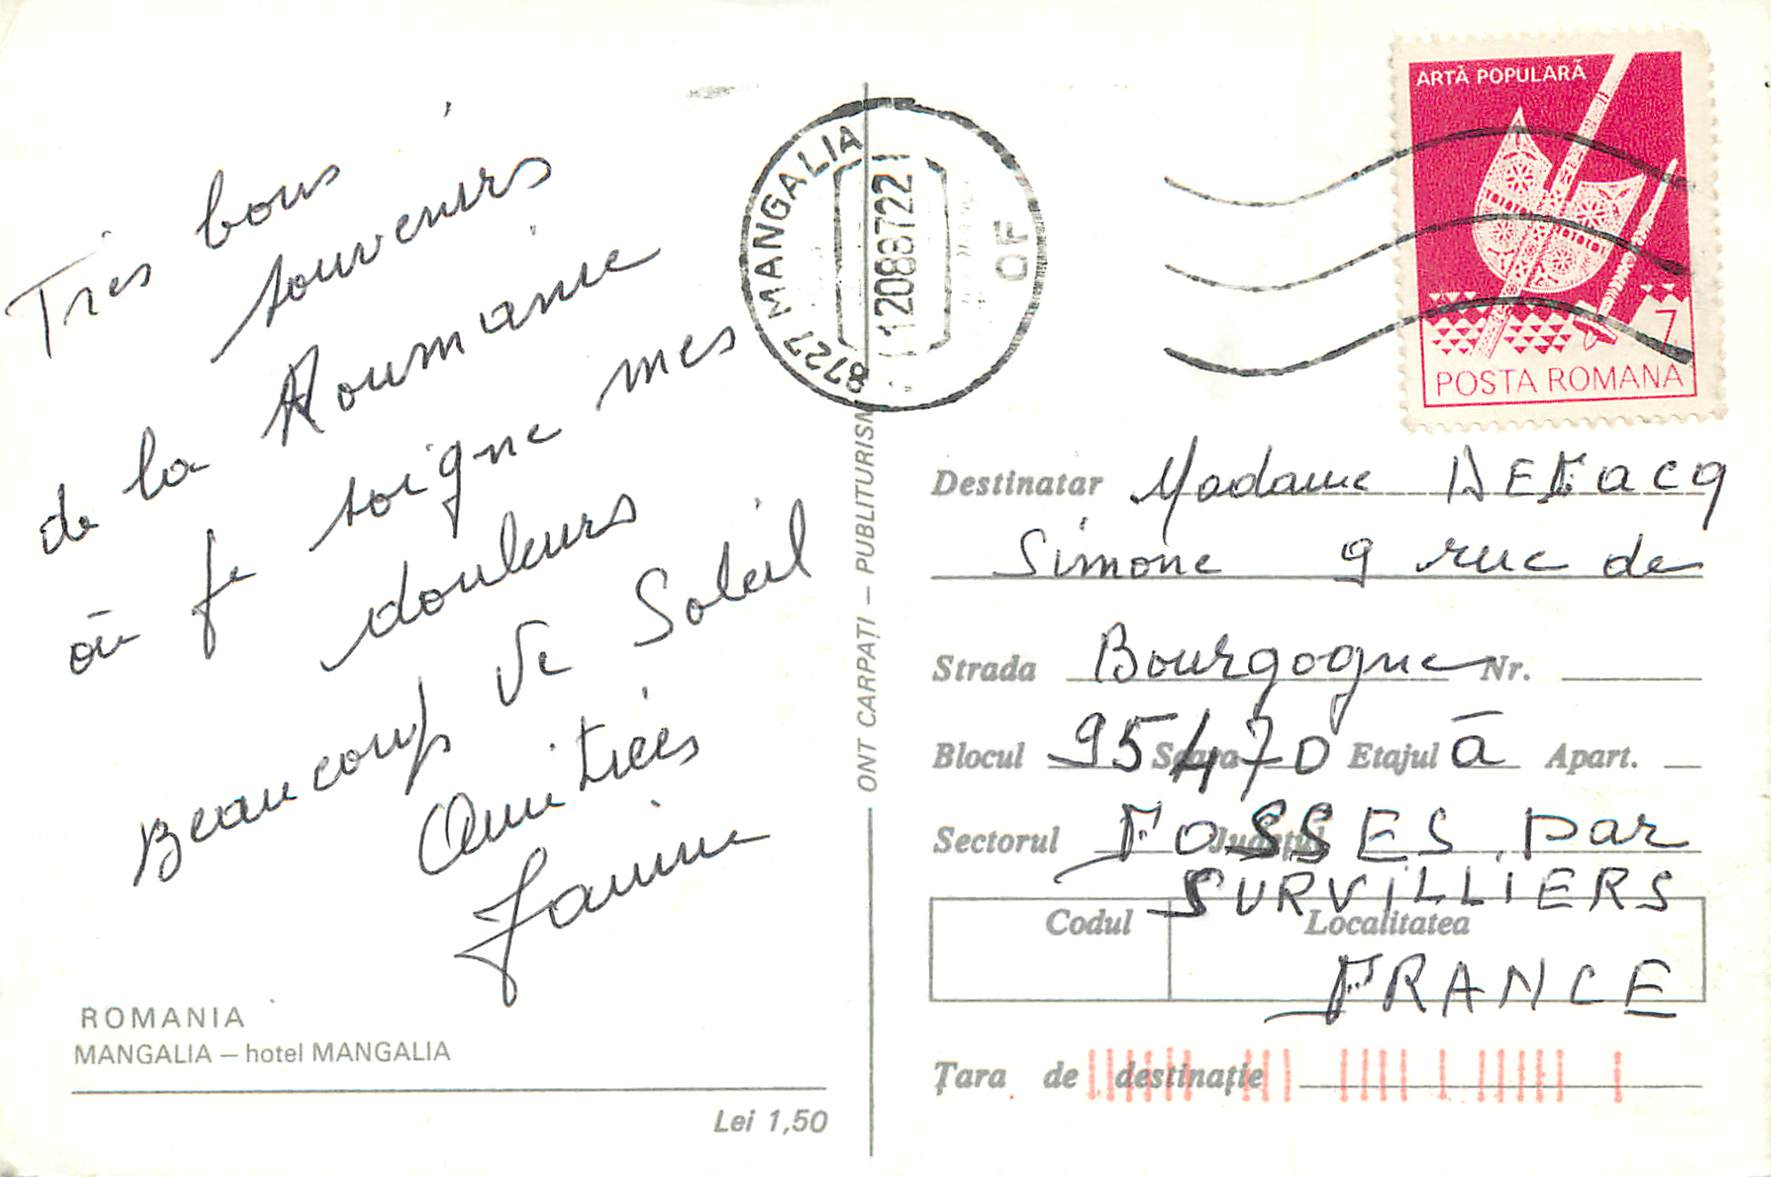 Très bons
souvenirs
de la Roumanie
où je soigne mes
douleurs
Beaucoup de Soleil
Amitiés
Janine
ROMANIA
MANGALIA – hotel MANGALIA
Lei 1,50
ONT CARPAŢI – PUBLITURISM
8727 MANGALIA
12088722
OF
ARTĂ POPULARĂ
7
POSTA ROMANA
Destinatar Madame
Simone 9 rue de
Strada Bourgogne Nr.
Blocul 95470 Scara Etajul à Apart.
Sectorul FOSSES par Judeţul
SURVILLIERS
Codul Localitatea
FRANCE
Ţara de destinaţie